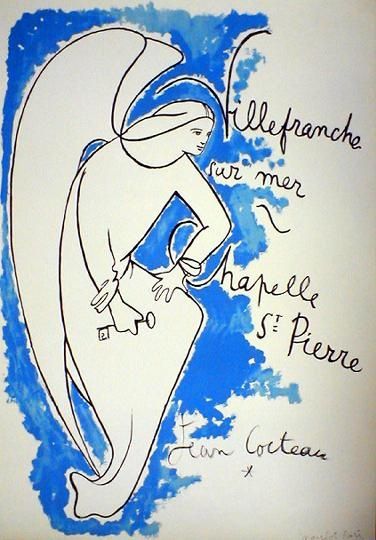 Villefranche
sur mer
Chapelle
St Pierre
Jean Cocteau